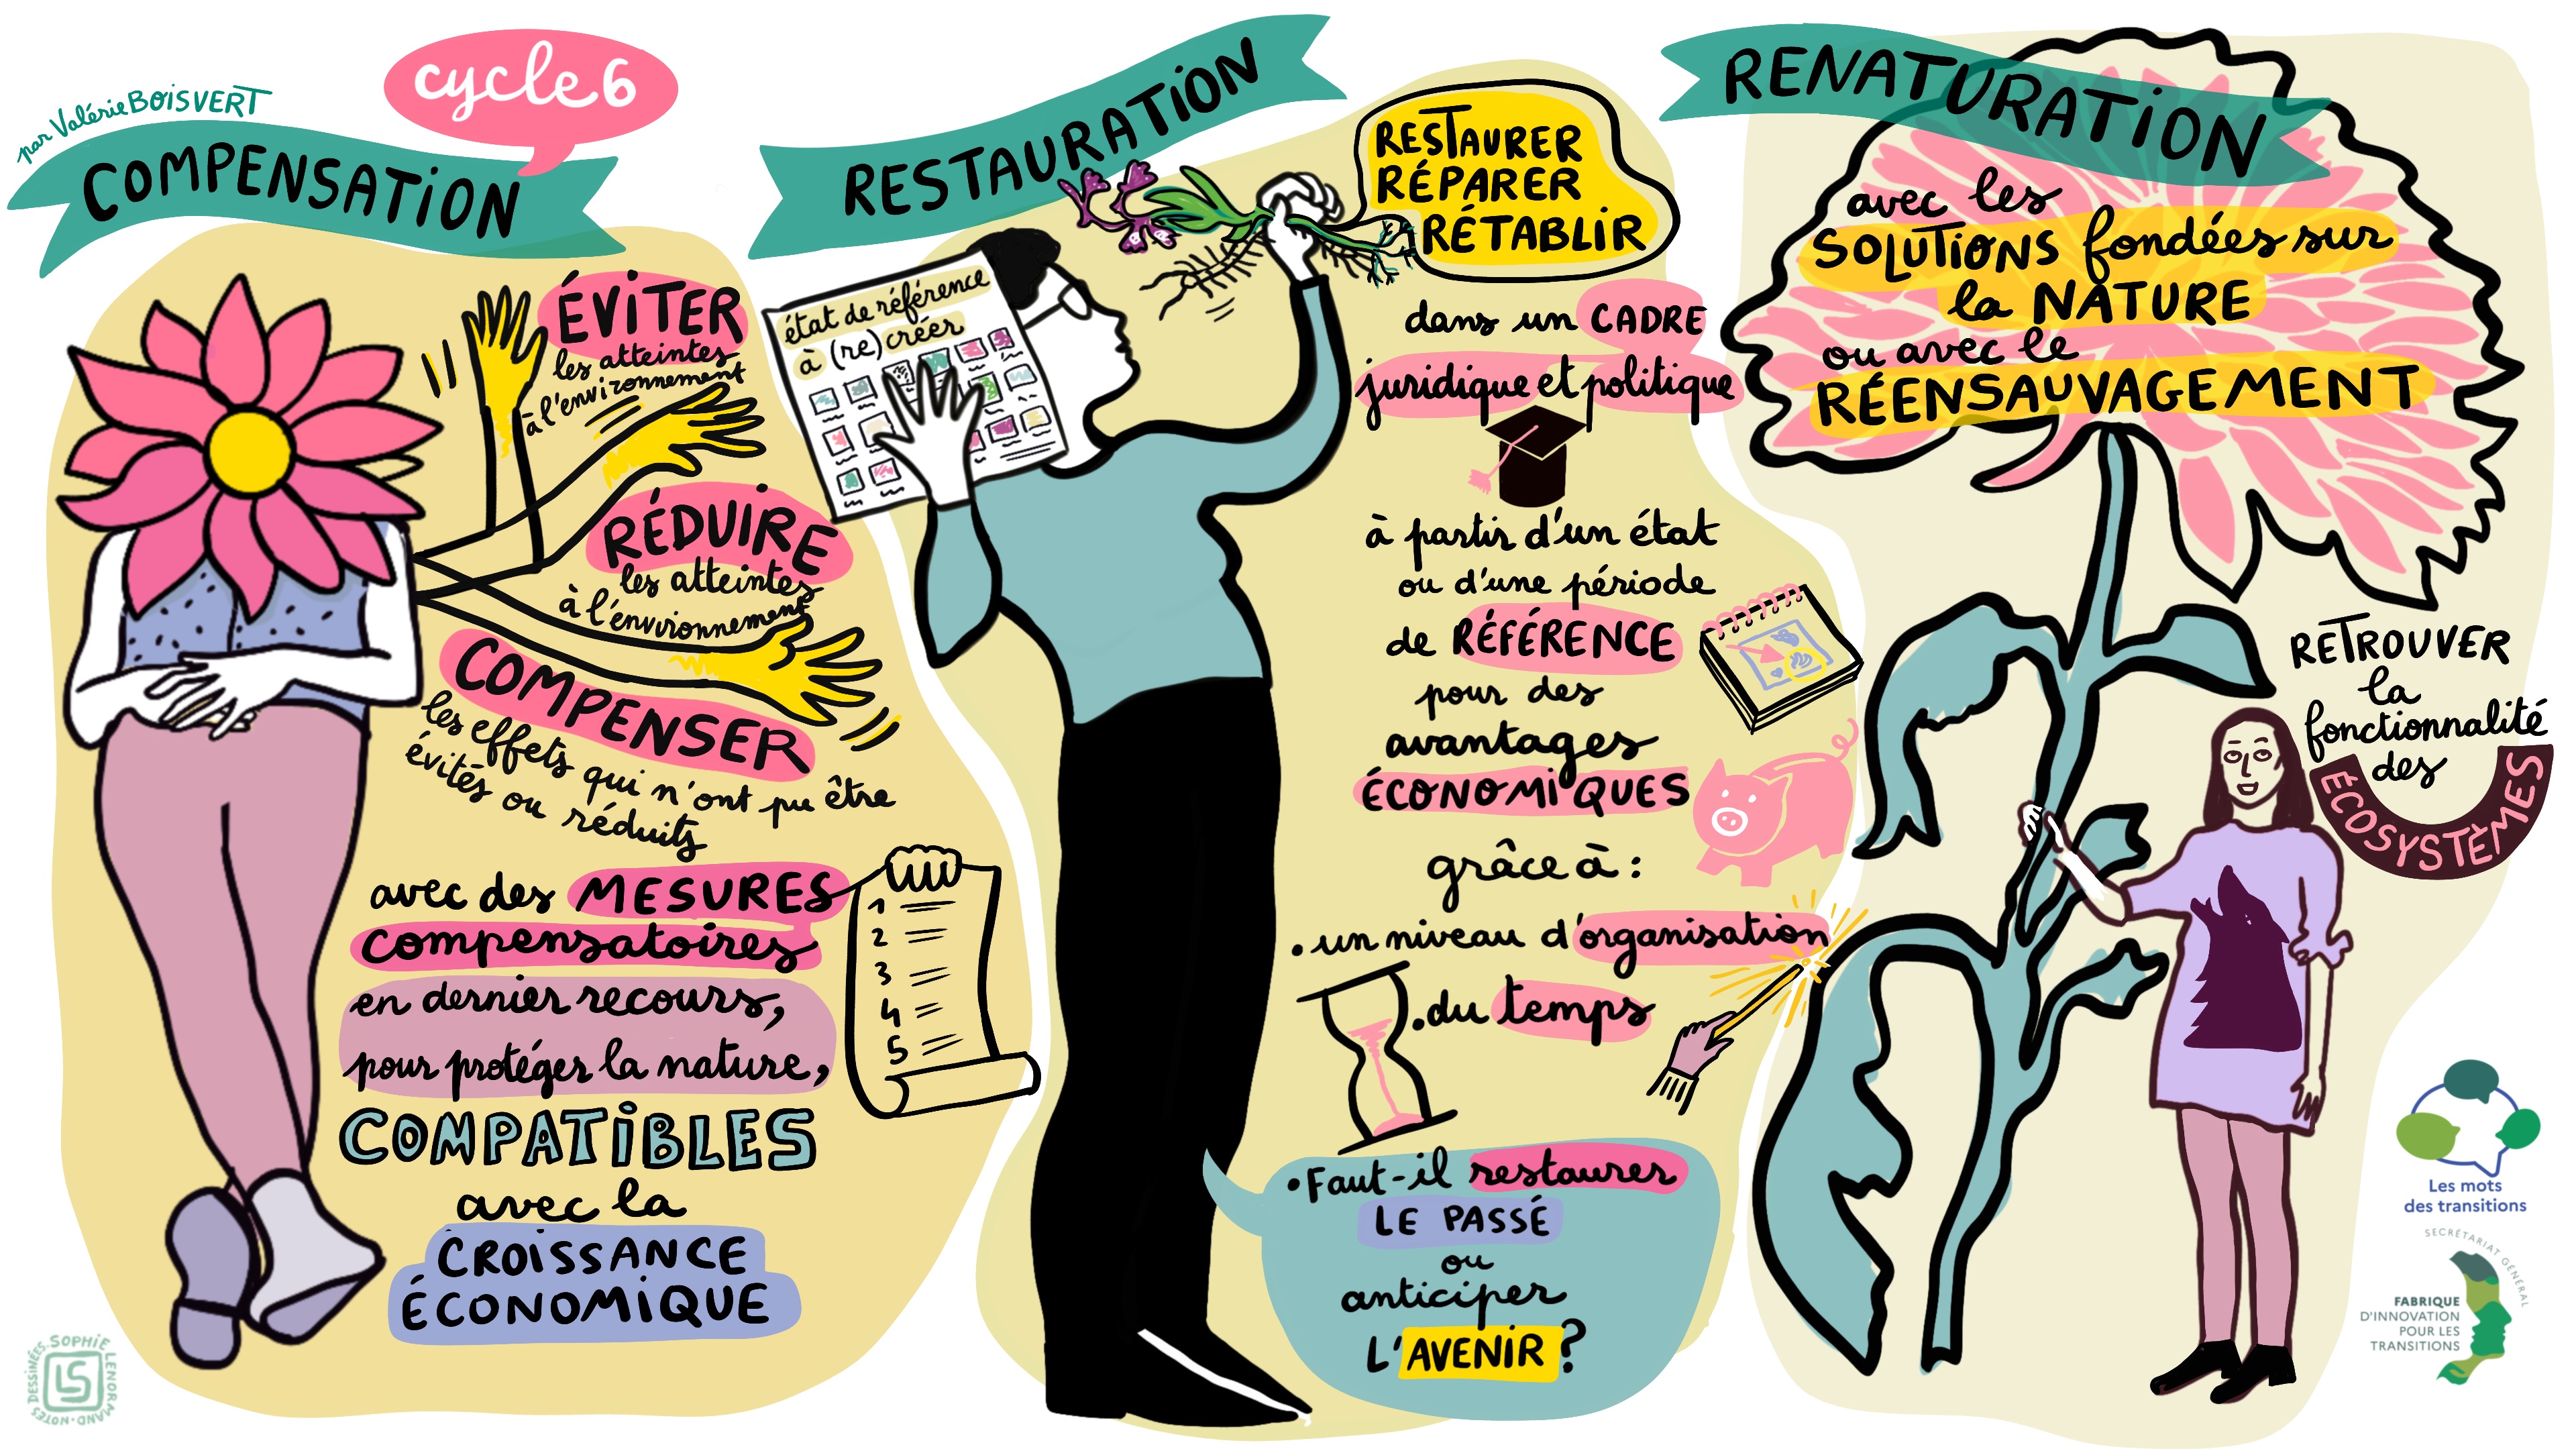 par Valérie BOISVERT
cycle 6
COMPENSATION
ÉVITER
les atteintes
à l'environnement
RÉDUIRE
les atteintes
à l'environnement
COMPENSER
les effets qui n'ont pu être
évités ou réduits
avec des MESURES
compensatoires
en dernier recours,
pour protéger la nature,
COMPATIBLES
avec la
CROISSANCE
ÉCONOMIQUE
1
2
3
4
5
RESTAURATION
état de référence
à (re) créer
RESTAURER
RÉPARER
RÉTABLIR
dans un CADRE
juridique et politique
à partir d'un état
ou d'une période
de RÉFÉRENCE
pour des
avantages
ÉCONOMIQUES
grâce à :
• un niveau d'organisation
• du temps
• Faut-il restaurer
LE PASSÉ
ou
anticiper
L'AVENIR ?
RENATURATION
avec les
SOLUTIONS fondées sur
la NATURE
ou avec le
RÉENSAUVAGEMENT
RETROUVER
la
fonctionnalité
des
ÉCOSYSTÈMES
Les mots
des transitions
SECRÉTARIAT GÉNÉRAL
FABRIQUE
D'INNOVATION
POUR LES
TRANSITIONS
SOPHIE LENORMAND • NOTES DESSINÉES
LS